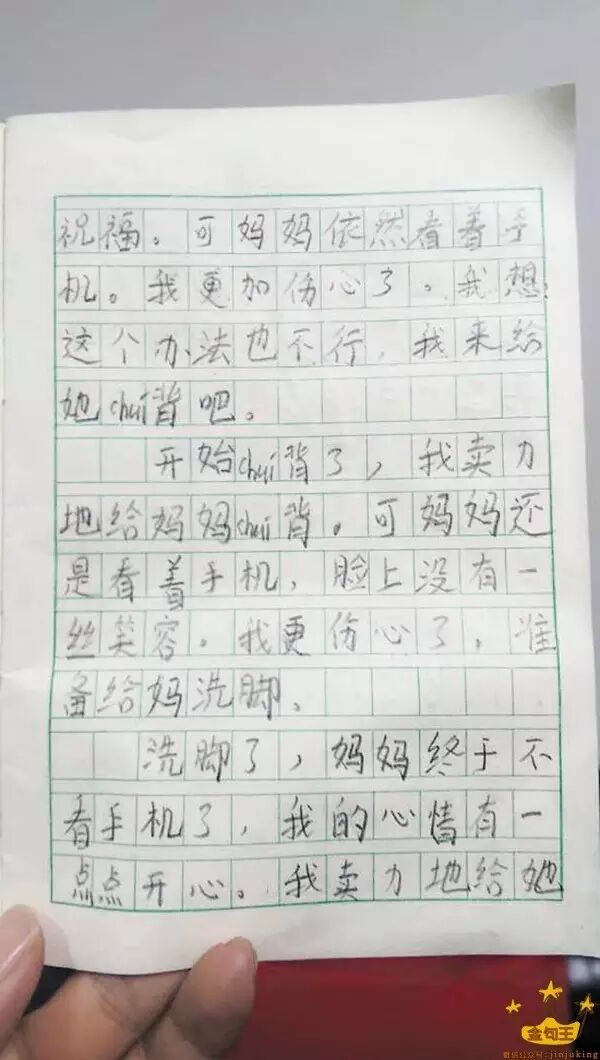 祝福。可妈妈依然看着手
机。我更加伤心了。我想:
这个办法也不行，我来给
她chui背吧。
开始chui背了，我卖力
地给妈妈chui背。可妈妈还
是看着手机，脸上没有一
丝笑容。我更伤心了，准
备给妈洗脚。
洗脚了，妈妈终于不
看手机了，我的心情有一
点点开心。我卖力地给她
金句王
微信公众号:jinjuking